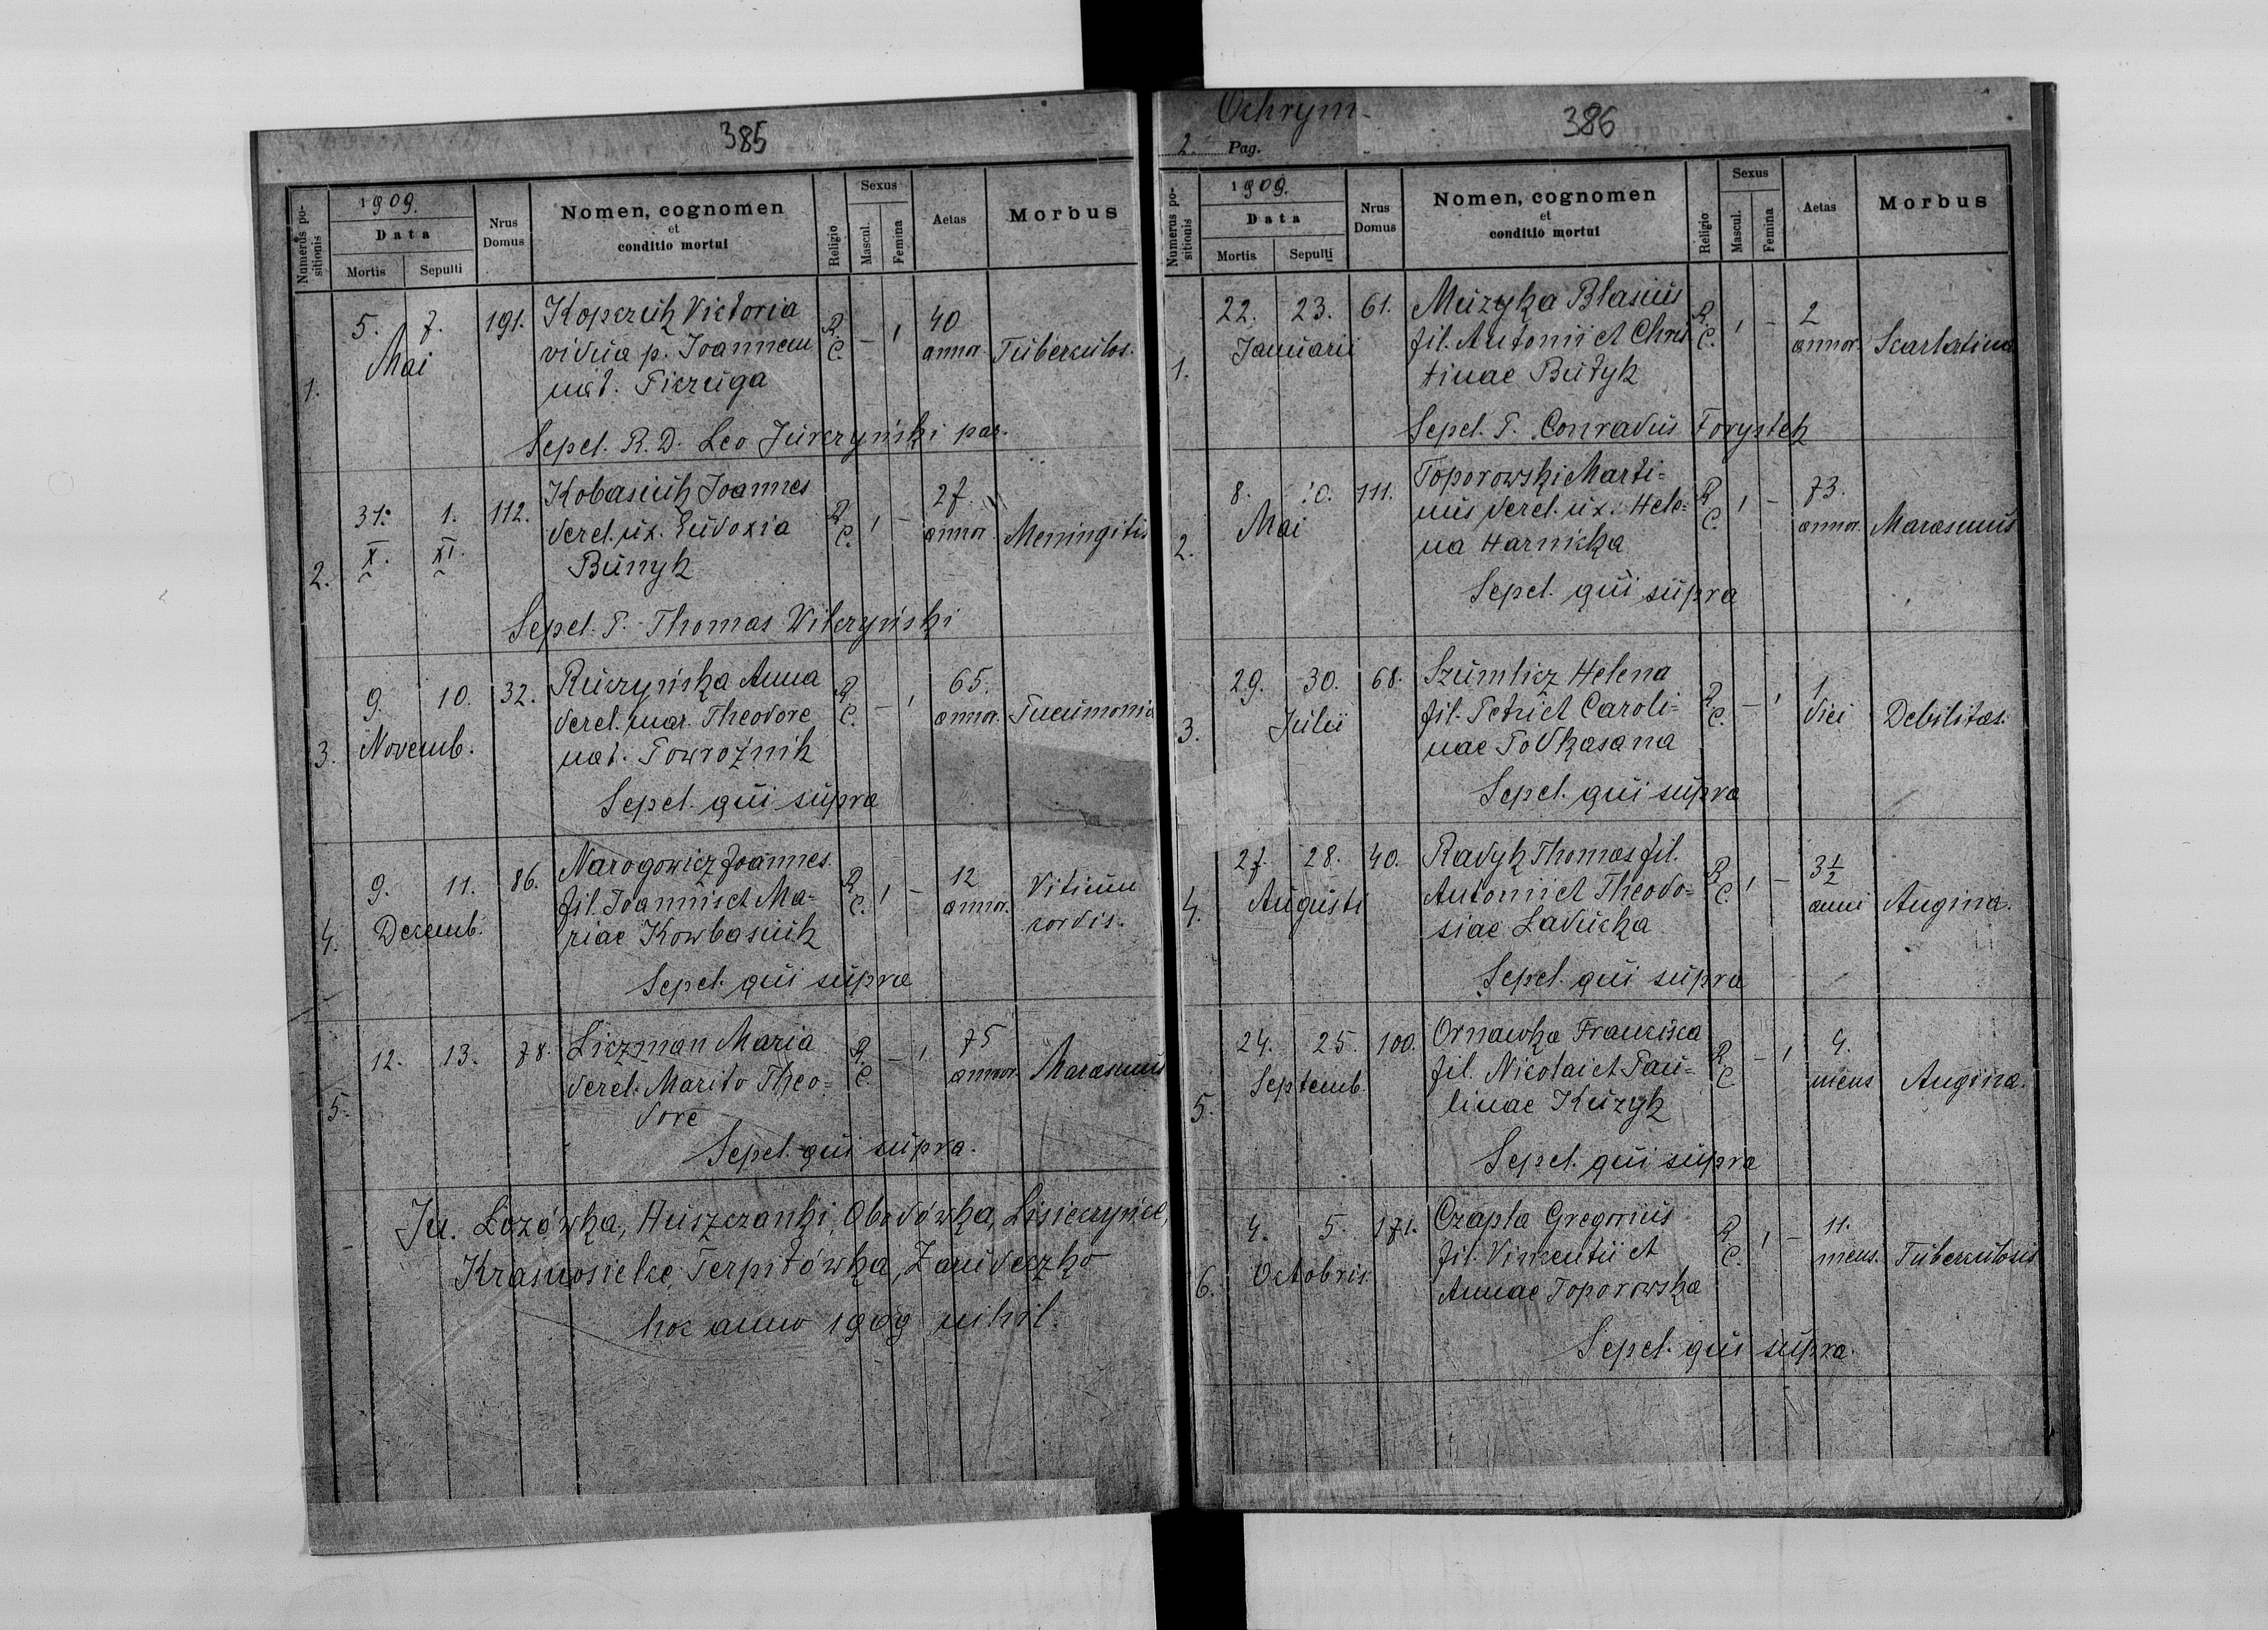 385
Numerus positionis
1909.
Data
Mortis
Sepulti
Nrus Domus
Nomen, cognomen
et
conditio mortui
Religio
Sexus
Mascul.
Femina
Aetas
Morbus
1. 5. 7. 191. Kopczuk Victoria R. – 1 40
Mai vidua p. Joannem C. annor. Tuberculos.
nat. Piczuga
Sepel. R. D. Leo Jurczyński par.
2. 31. 1. 112. Kobasiuk Joannes R. 1 – 27.
X. XI. derel. ux. Eudoxia C. annor. Meningitis
Bunyk
Sepel. P. Thomas Wilczyński
3. 9. 10. 32. Ruczyńska Anna R. – 1 65.
Novemb. derel. mar. Theodore C. annor. Pneumonia
nat. Powroźnik
Sepel. qui supra
4. 9. 11. 86. Narogowicz Joannes R. 1 – 12 Vitium
Decemb. fil. Joannis et Ma= C. annor. cordis.
riae Kowbasiuk
Sepel. qui supra
5. 12. 13. 78. Liczman Maria R. – 1 75
derel. Marito Theo= C. annor. Marasmus
dore
Sepel. qui supra.
In. Lozówka, Huszczanki, Obodówka, Lisieczyńce,
Krasnosielce, Terpiłówka, Zarudeczko
hoc anno 1909 nihil.
Ochrym-
386
2 Pag.
Numerus positionis
1909.
Data
Mortis
Sepulti
Nrus Domus
Nomen, cognomen
et
conditio mortui
Religio
Sexus
Mascul.
Femina
Aetas
Morbus
1. 22. 23. 61. Muzyka Blasius R. 1 – 2
Januarii fil. Antonii et Chris C. annor. Scarlatina
tinae Budyk
Sepel. P. Conradus Forystek
2. 8. 10. 111. Toporowski Marti= R. 1 – 73.
Mai nus derel. ux. Hele= C. annor. Marasmus
na Harnicka
Sepel. qui supra
3. 29. 30. 68. Szumlicz Helena R. – 1 1
Julii fil. Petri et Caroli= C. diei Debilitas.
nae Podkasana
Sepel. qui supra
4. 27. 28. 40. Radyk Thomas fil. R. 1 – 3 1/2
Augusti Antonii et Theodo= C. anni Angina.
siae Laducka
Sepel. qui supra
5. 24. 25. 100. Ornawka Francisca R. – 1 4.
Septemb. fil. Nicolai et Pau= C. mens Angina.
linae Kuzyk
Sepel. qui supra
6. 4. 5. 171. Czapla Gregorius R. 1 – 11.
Octobris. fil. Vincentii et C. mens. Tuberculosis
Annae Toporowska
Sepel. qui supra.